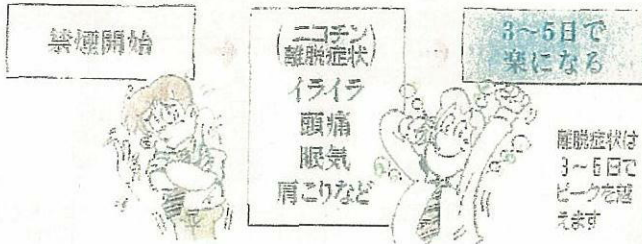 禁煙開始
(ニコチン
離脱症状)
イライラ
頭痛
眠気
肩こりなど
3～5日で
楽になる
離脱症状は
3～5日で
ピークを越
えます